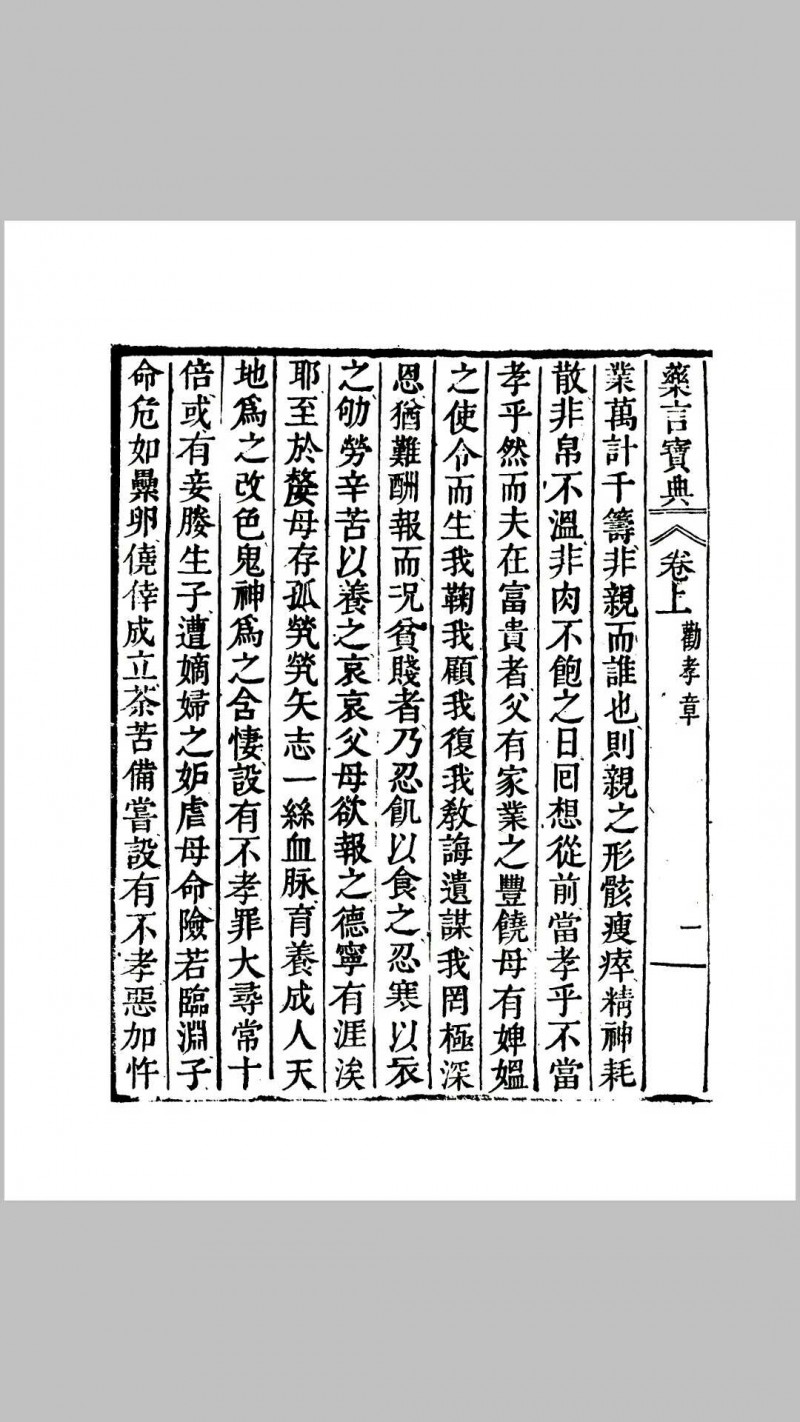 藥言寶典 卷上 勸孝章 二
業萬計千籌非親而誰也則親之形骸瘦瘁精神耗
散非帛不溫非肉不飽之日囘想從前當孝乎不當
孝乎然而夫在富貴者父有家業之豐饒母有婢媼
之使令而生我鞠我顧我復我教誨遺謀我罔極深
恩猶難酬報而况貧賤者乃忍飢以食之忍寒以衣
之劬勞辛苦以養之哀哀父母欲報之德寧有涯涘
耶至於嫠母存孤煢煢矢志一絲血脉育養成人天
地爲之改色鬼神爲之含悽設有不孝罪大尋常十
倍或有妾媵生子遭嫡婦之妒虐母命險若臨淵子
命危如纍卵僥倖成立茶苦備嘗設有不孝惡加忤